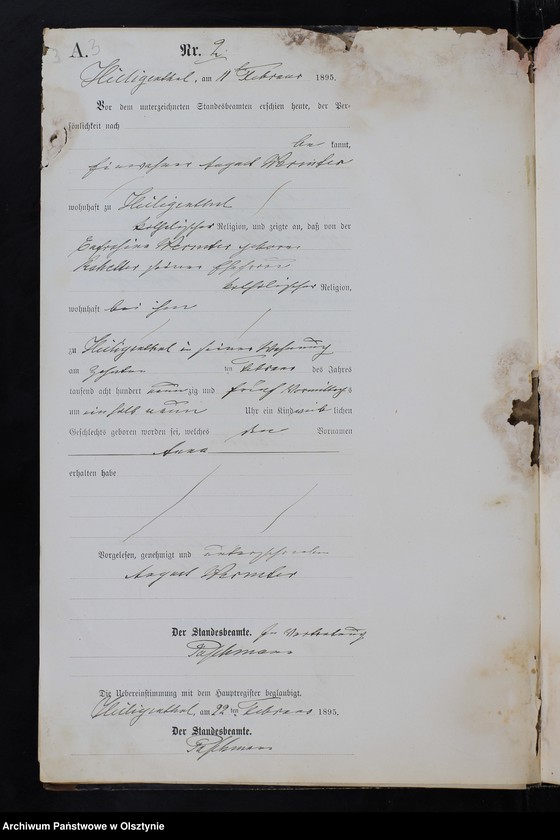 A. 3
Nr. 2.
Heiligenthal, am 11 Februar 1895.
Vor dem unterzeichneten Standesbeamten erschien heute, der Per-
sönlichkeit nach
be kannt,
Einwohner August Wermter
wohnhaft zu Heiligenthal
katholischer Religion, und zeigte an, daß von der
Wermter geborne
seiner Ehefrau
katholischer Religion,
wohnhaft bei ihm
zu Heiligenthal in seiner Wohnung
am zehnten ten Februar des Jahres
tausend acht hundert neun zig und fünf Vormittags
um ein halb neun Uhr ein Kind weib lichen
Geschlechts geboren worden sei, welches den Vornamen
Anna
erhalten habe
Vorgelesen, genehmigt und unterschrieben
August Wermter
Der Standesbeamte. In Vertretung
Die Uebereinstimmung mit dem Hauptregister beglaubigt.
Heiligenthal, am 22 ten Februar 1895.
Der Standesbeamte.
Archiwum Państwowe w Olsztynie